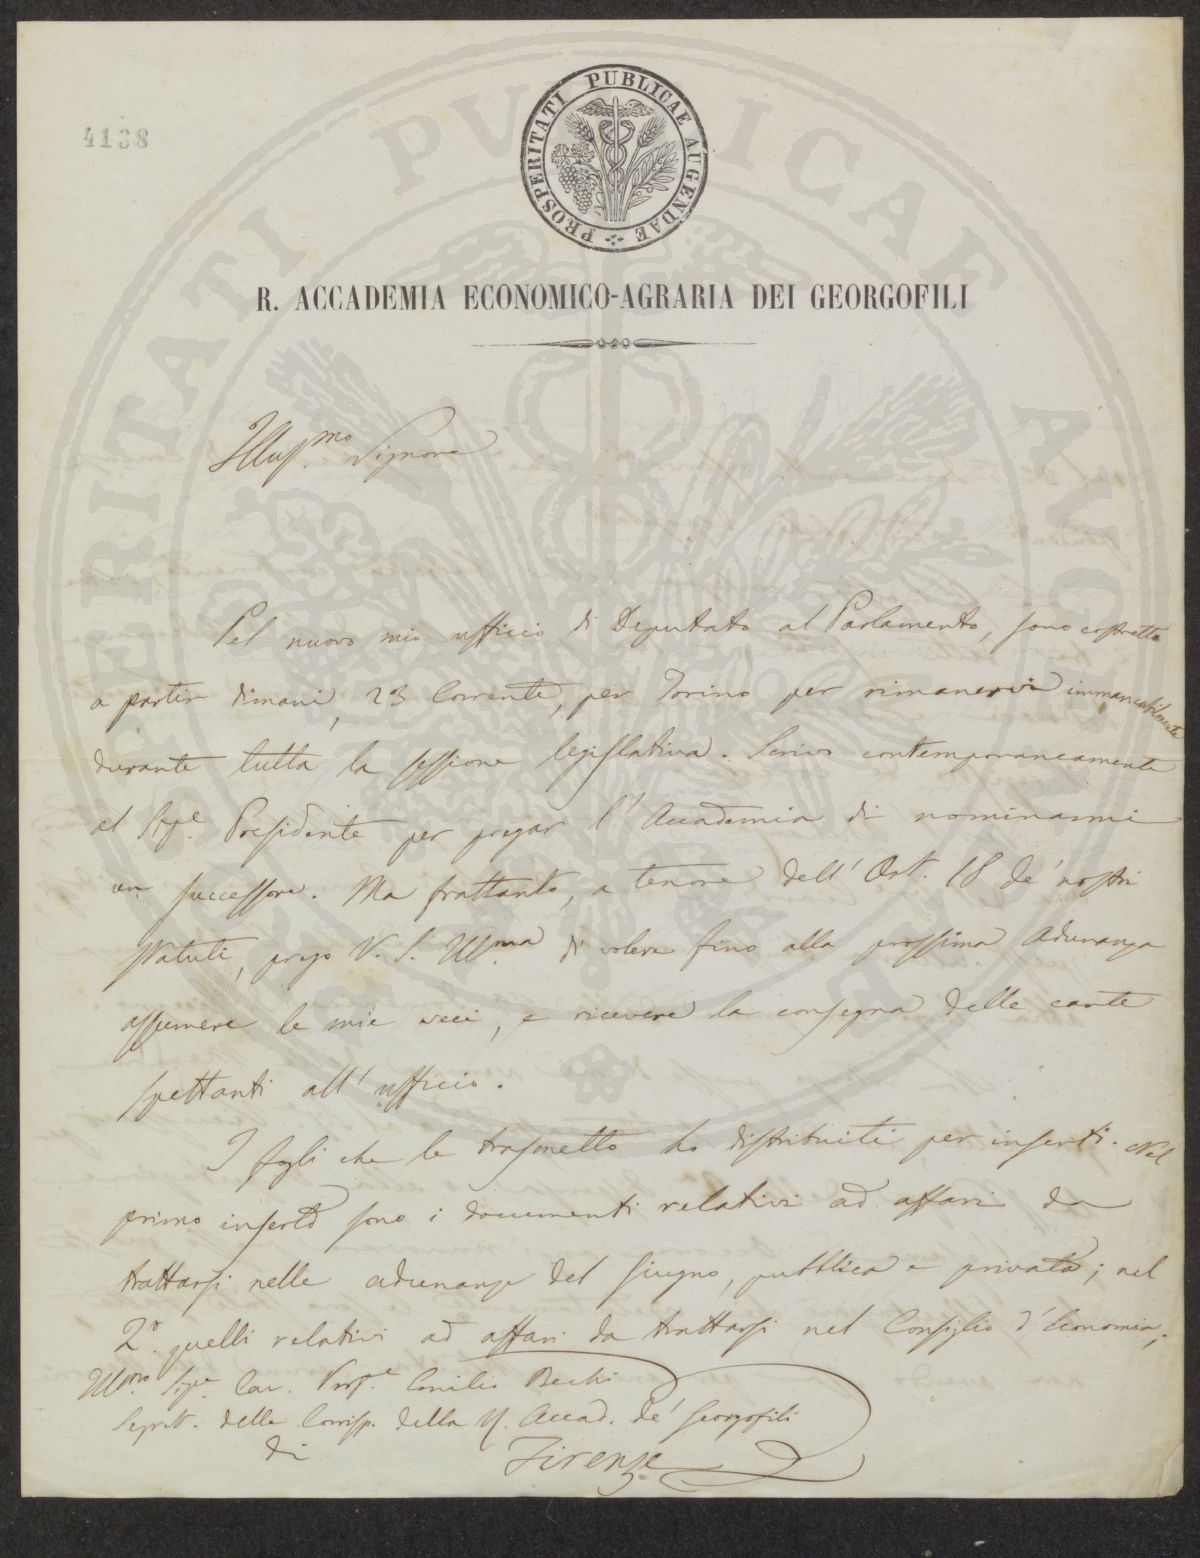 4138
PROSPERITATI PUBLICAE AUGENDAE
R. ACCADEMIA ECONOMICO-AGRARIA DEI GEORGOFILI
Illus.mo Signore
Pel nuovo mio ufficio di Deputato al Parlamento, sono costretto
a partir dimani, 23 Corrente, per Torino per rimanervi immancabilmente
durante tutta la sessione legislativa. Scrivo contemporaneamente
al Sig.e Presidente per pregar l'Accademia di nominarmi
un successore. Ma frattanto, a tenore dell'Art. 18 de' nostri
Statuti, prego V. S. Ill.ma di volere fino alla prossima Adunanza
assumere le mie veci, e ricevere la consegna delle carte
spettanti all'ufficio.
I fogli che le trasmetto ho distribuiti per inserti. Nel
primo inserto sono i documenti relativi ad affari da
trattarsi nelle adunanze del Giugno, pubblica e privata; nel
2.o quelli relativi ad affari da trattarsi nel Consiglio d'Economia;
Ill.mo Sig.e Cav. Prof.e Emilio Bechi
Segret. delle Corrisp. della R. Accad. de' Georgofili
di Firenze